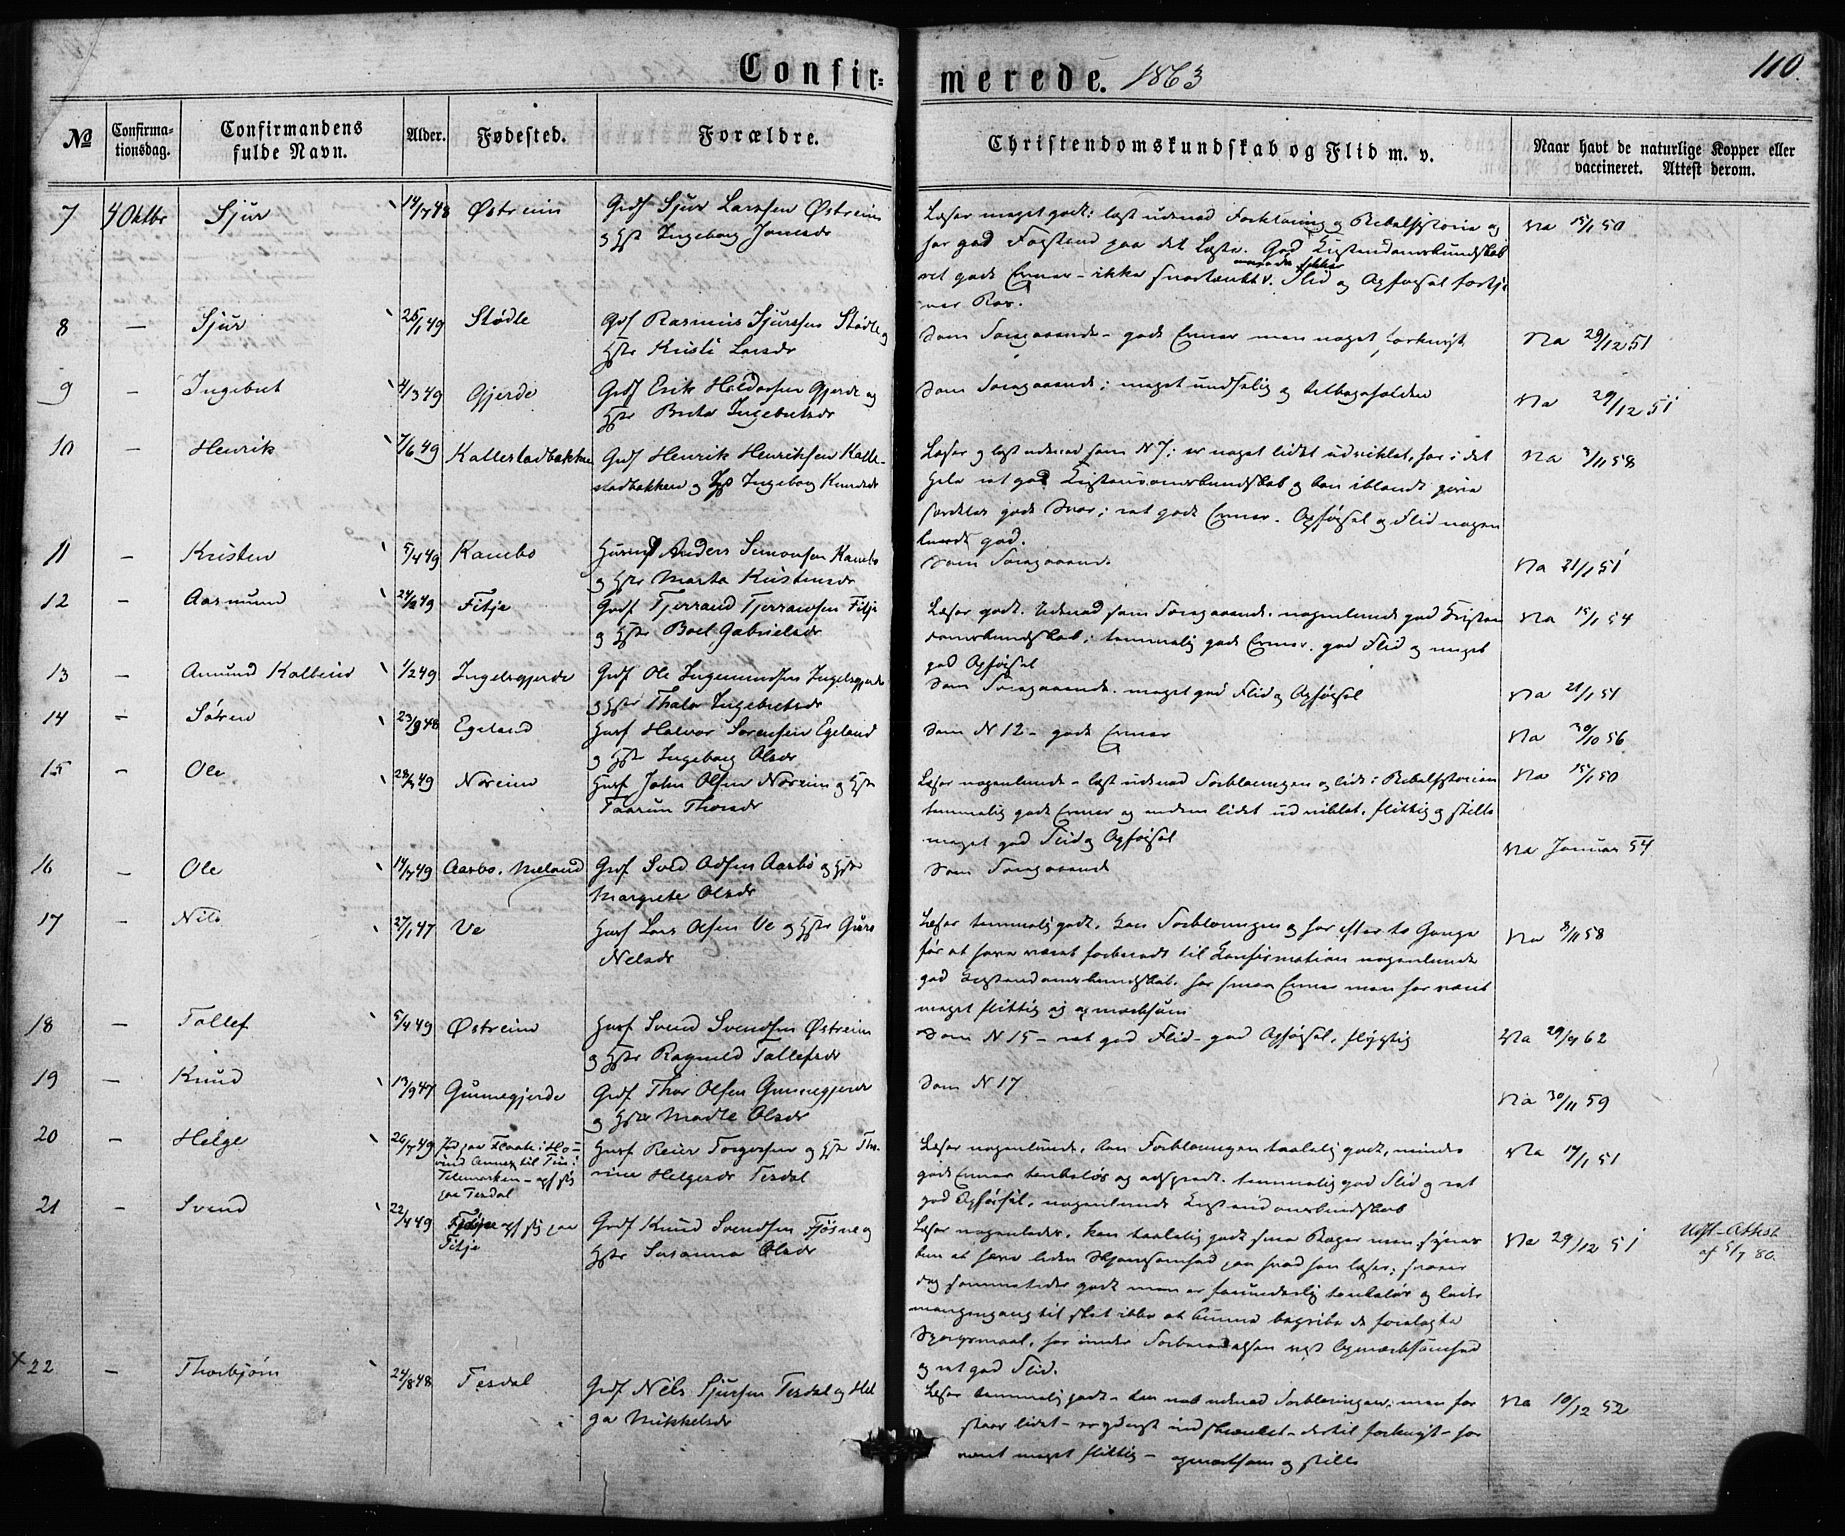 Confir=
merede. 1863
110.
No
Confirma-
tionsdag.
Confirmandens
fulde Navn.
Alder.
Fødested.
Forældre.
Christendomskundskab og Flid m. v.
Naar havt de naturlige Kopper eller
vaccineret. Attest derom.
7 4 Oktbr Sjur 14/7 48 Østreim Grdf Sjur Larssen Østreim
og Hst Ingeborg Jonsdr
Læser meget godt; læst udenad Forklaring og Bibelhistorie og
har god Forstand paa det Læste. God Kristendomskundskab
ret gode Evner - ikke snartænkt. Flid og Opførsel fortje
ner Ros.
Va 15/1 50
8 — Sjur 26/1 49 Stødle Grdf Rasmus Sjurssen Stødle og
Hst Kristi Larsdr
Som Foregaaende - gode Evner men noget forknyt
Va 29/12 51
9 — Ingebret 4/3 49 Gjerde Grdf Erik Haldorsen Gjerde og
Hst Brita Ingebretsdr
Som Foregaaende; meget undselig og tilbageholden
Va 29/12 51
10 — Henrik 7/6 49 Kallestadbakken Grdf Henrik Henriksen Kalle-
stadbakken og Hst Ingeborg Knudsdr
Læser og læst udenad som N 7; er noget lidet udviklet, har i det
Hele ret god Kristendomskundskab og kan iblandt give
særdeles gode Svar; ret gode Evner. Opførsel og Flid nogen
lunde god.
Va 3/11 58
11 — Kristen 5/4 49 Kambo Husmd Anders Simonsen Kambo
og Hst Marta Kristensdr
Som Foregaaende
Va 21/1 51
12 — Aasmund 24/2 49 Fitje Grdf Tjerrand Tjerransen Fitje
og Hst Boel Gabrielsdr
Læser godt. Udenad som Foregaaende. nogenlunde god Kristen
domskundskab; temmelig gode Evner. god Flid og meget
god Opførsel
Va 15/1 54
13 — Amund Kolbein 1/2 49 Ingelsgjerde Grdf Ole Ingemundsen Ingelsgjerde
og Hst Thala Ingebretsdr
Som Foregaaende. meget god Flid og Opførsel
Va 21/1 51
14 — Søren 23/9 48 Egeland Husf Halvor Sørensen Egeland
og Hst Ingeborg Olsdr
Som N 12 - gode Evner
Va 30/10 56
15 — Ole 49 Noreim Husf John Olsen Noreim og Hst
Taarun Thorsdr
Læser nogenlunde - læst udenad Forklaringen og lidt i Bibelhistorien
temmelig gode Evner og endnu lidet udviklet, flittig og stille
meget god Flid og Opførsel
Va 15/1 50
16 — Ole 14/7 49 Aarbo, Meland Grdf Sold Adsen Aarbo og Hst
Margrete Olsdr
Som Foregaaende
Va Januar 54
17 — Nils 27/1 47 Ve Husf Lars Olsen Ve og Hst Guro
Nelsdr
Læser temmelig godt. kan Forklaringen og har efter to Gange
før at have været forberedt til Konfirmation nogenlunde
god Kristendomskundskab. har smaa Evner men har været
meget flittig og opmærksom
Va 8/11 58
18 — Tollef 5/4 49 Østreim Husf Svend Svendsen Østreim
og Hst Ragnild Tollefsdr
Som N 15 - ret god Flid - god Opførsel, flygtig
Va 29/4 62
19 — Knud 13/9 47 Gunnegjerde Grdf Thor Olsen Gunnegjerde
og Hst Madle Olsdr
Som N 17
Va 30/11 59
20 — Helge 26/7 49 Fød paa Flaate i Ho-
vind Annex til Tin i
Telemarken - opfødt
paa Tesdal
Husf Reier Torgersen og Hst Tho
rine Helgesdr Tesdal
Læser nogenlunde, kan Forklaringen taalelig godt, mindre
gode Evner tankeløs og adspredt. temmelig god Flid og ret
god Opførsel, nogenlunde Kristendomskundskab
Va 17/1 51
21 — Svend 22/4 49 Fjøsne opfødt paa
Fitje
Grdf Knud Svendsen Fjøsne og
Hst Susanna Olsdr
Læser nogenledes, kan taalelig godt sine Bøger men synes
kun at have liden Hjemsomhed paa hvad han læser; svarer
dog sommetider godt men er forunderlig tankeløs og lader
mangengang til slet ikke at kunne begribe de forelagte
Spørgsmaal, har under Forberedelsen vist Opmærksomhed
og ret god Flid.
Va 29/12 51
Udst. Attest
af 5/7 80.
x 22 — Thorbjørn 24/8 48 Tesdal Grdf Nels Sjursen Tesdal og Hel
ga Mikkelsdr
Læser temmelig godt - kan nok udenad Forklaringen; men for
staar lidet - er yderst indskrænket - dertil forknyt - har
været meget flittig - opmærksom og stille
Va 10/12 52